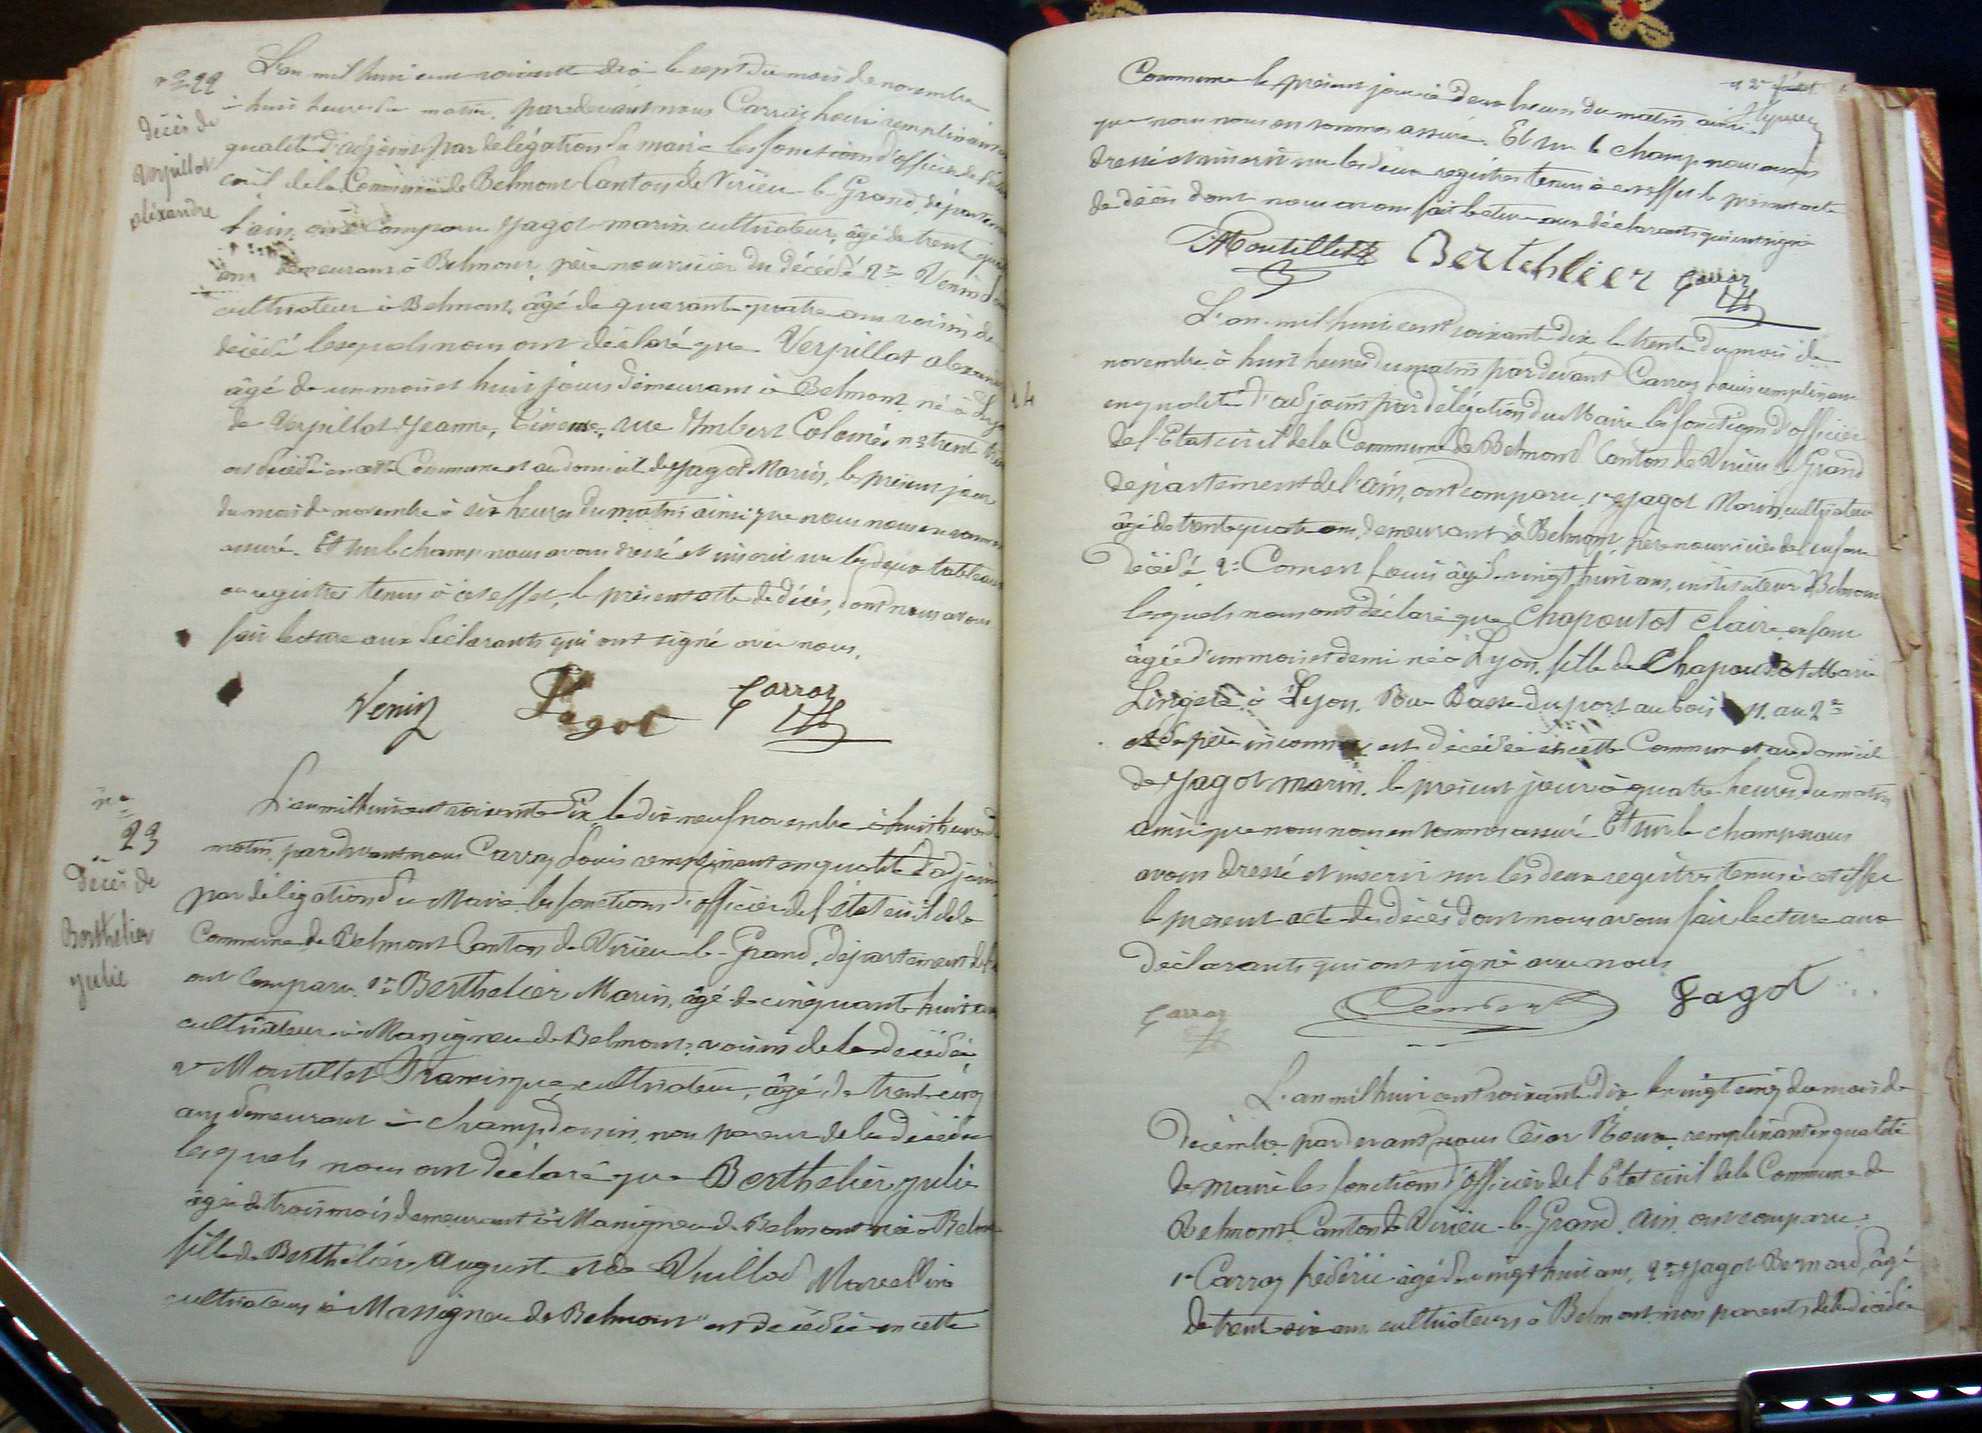 n° 22
décès de
Verpillot
alexandre
L'an mil huit cent soixante dix le sept du mois de novembre
à huit heures du matin, par devant nous Carraz Louis remplissant en
qualité d'adjoint par délégation du maire les fonctions d'officier de l'état
civil de la Commune de Belmont Canton de Virieu-le-Grand, département
l'ain, ont Comparu Jagot marin cultivateur, âgé de trente quatre
ans demeurant à Belmont, père nourricier du décédé 2° Venin
cultivateur à Belmont, âgé de quarante quatre ans voisin du
décédé lesquels nous ont déclaré que Verpillot alexandre
âgé de un mois et huit jours demeurant à Belmont né à Lyon
de Verpillot Jeanne, rue Imbert Colomès n° trente
est décédé en cette Commune et au domicile de Jagot Marin, le présent jour
du mois de novembre à six heures du matin ainsi que nous nous en sommes
assuré. Et sur le champ nous avons dressé et inscrit sur les deux tableaux
ou registres tenus à cet effet, le présent acte de décès, dont nous avons
fait lecture aux déclarants qui ont signé avec nous.
Venin Jagot Carraz
n°
23
Décès de
Berthelier
julie
L'an mil huit cent soixante dix, le dix neuf novembre à huit heures du
matin, par devant nous Carraz Louis remplissant en qualité d'adjoint
par délégation du Maire les fonctions d'officier de l'état civil de la
Commune de Belmont Canton de Virieu-le-Grand, département de l'
ont Comparu 1° Berthelier Marin, âgé de cinquante huit ans
cultivateur à Massigneu de Belmont, voisin de la décédée
2° Moutillet Francisque, cultivateur, âgé de trente cinq
ans demeurant à champdossin, non parent de la décédée
lesquels nous ont déclaré que Berthelier julie
âgée de trois mois demeurant à Massigneu de Belmont née à Belmont
fille de Berthelier, August et de Vuillod Marcelline
cultivateurs à Massigneu de Belmont est décédée en cette
Commune le présent jour à deux heures du matin ainsi
que nous nous en sommes assuré. Et sur le champ nous avons
dressé et inscrit sur les deux registres tenus à cet effet le présent acte
de décès dont nous avons fait lecture aux déclarants qui ont signé
Moutillet Berthelier Carraz
24
L'an mil huit cent soixante dix le trente du mois de
novembre à huit heures du matin par devant Carraz Louis remplissant
en qualité d'adjoint par délégation du Maire les fonctions d'officier
de l'Etat civil de la Commune de Belmont Canton de Virieu le Grand
département de l'ain, ont comparu, 1° Jagot Marin, cultivateur
âgé de trente quatre ans, demeurant à Belmont, père nourricier de l'enfant
décédé 2° Comert Louis âgé de vingt huit ans, instituteur à Belmont
lesquels nous ont déclaré que Chapoutot Claire enfant
âgée d'un mois et demi née à Lyon, fille de Chapoutot Marie
Lingère à Lyon, Rue Basse du port au bois 11. au 2°
et de père inconnu est décédée en cette Commune et au domicile
de Jagot marin, le présent jour à quatre heures du matin
ainsi que nous nous en sommes assuré Et sur le champ nous
avons dressé et inscrit sur les deux registres tenus à cet effet
le présent acte de décès dont nous avons fait lecture aux
déclarants qui ont signé avec nous
Carraz Jagot
L'an mil huit cent soixante dix le vingt cinq du mois de
décembre par devant nous César Roux remplissant en qualité
de maire les fonctions d'officier de l'Etat civil de la Commune de
Belmont Canton de Virieu-le-Grand, Ain, ont comparu:
1° Carraz fréderic âgé de vingt huit ans, 2° Jagot Bernard, âgé
de trente six ans cultivateurs à Belmont, non parents de la décédée